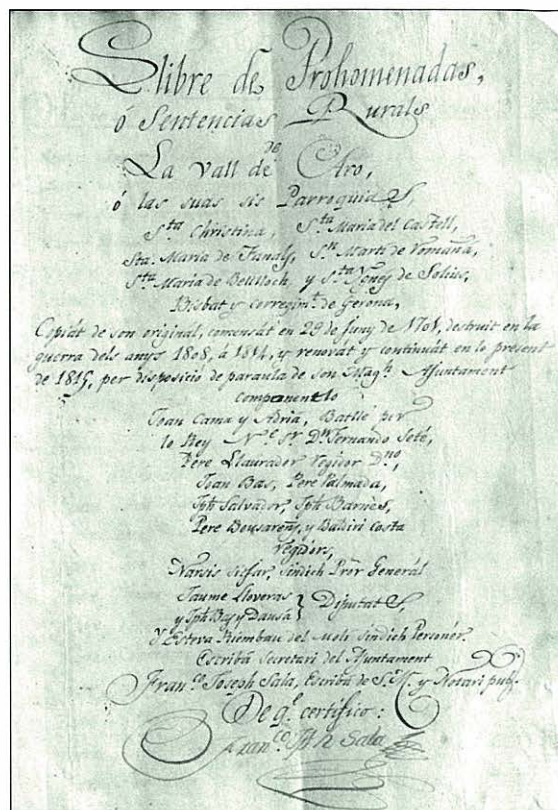 Llibre de Prohomenadas,
ó Sentencias Rurals
de
La Vall de Aro,
ó las suas sis Parroquias,
Sta. Christina, Sta. Maria del Castell,
Sta. Maria de Fanals, Sn. Martí de Romañá,
Sta. Maria de Bellloch, y Sta. Ygnes de Solius,
Bisbat y corregimt. de Gerona,
Copiát de son original, comensát en 29 de Juny de 1701, destruit en la
guerra dels anys 1808, á 1814, y renovát y continuát en lo present
de 1815, per disposicio de paraula de son Magch. Ajuntament
component lo
Joan Cama y Adriá, Batlle per
lo Rey N. S. Dn. Fernando Seté,
Pere Llaurador Regidor
Joan Bas, Pere Palmada,
Jph Salvador, Jph Barnés,
Pere Bousareñy, y Baldiri Costa
Regidors,
Narsis Sicfar, Sindich Prór General
Jaume Lloveras
y Jph Bas y Dausá } Diputats,
Y Esteva Riembau del Molí Sindich Personér.
Escribá Secretari del Ajuntament
Franco. Joseph Sala, Escribá de S. M. y Notari pub.
De qe. certifico:
Franco. Jph Sala